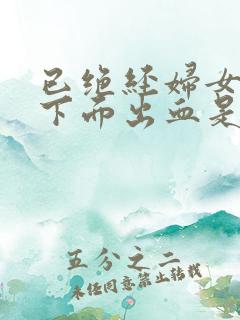 已绝经妇女
下面出血是
五分之二
未经同意禁止转载